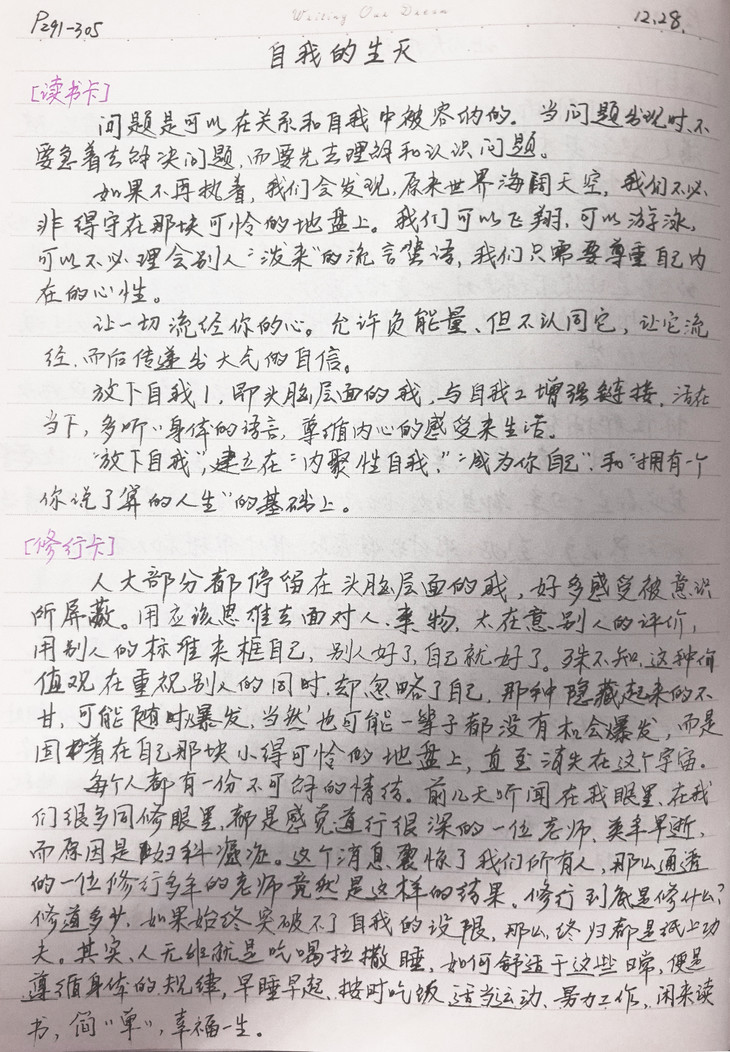 P291-305 Writing Our Dream 12.28.
自我的生灭
[读书卡]
问题是可以在关系和自我中被容纳的。当问题出现时,不
要急着去解决问题,而要先去理解和认识问题。
如果不再执着,我们会发现,原来世界海阔天空,我们不必
非得守在那块可怜的地盘上。我们可以飞翔,可以游泳,
可以不必理会别人“泼来”的流言蜚语,我们只需要尊重自己内
在的心性。
让一切流经你的心。允许负能量、但不认同它,让它流
经,而后传递出大气的自信。
放下自我1,即头脑层面的我,与自我2增强链接,活在
当下,多听心身体的语言,尊循内心的感受来生活。
“放下自我”,建立在“内聚性自我,”“成为你自己”,和“拥有一个
你说了算的人生”的基础上。
[修行卡]
人大部分都停留在头脑层面的我,好多感受被意识
所屏蔽。用应该思维去面对人、事物,太在意别人的评价,
用别人的标准来框自己,别人好了,自己就好了。殊不知,这种价
值观在重视别人的同时,却忽略了自己,那种隐藏起来的不
甘,可能随时爆发,当然也可能一辈子都没有机会爆发,而是
固着在自己那块小得可怜的地盘上,直至消失在这个宇宙。
每个人都有一份不可解的情结。前几天听闻在我眼里、在我
们很多同修眼里,都是感觉道行很深的一位老师,英年早逝,
而原因是妇科癌症。这个消息震惊了我们所有人,那么通透
的一位修行多年的老师竟然是这样的结果。修行到底是修什么?
修道多少,如果始终突破不了自我的设限,那么,终归都是纸上功
夫。其实,人无非就是吃喝拉撒睡,如何舒适于这些日常,便是
遵循身体的规律,早睡早起、按时吃饭、适当运动、努力工作,闲来读
书,简“单”,幸福一生。